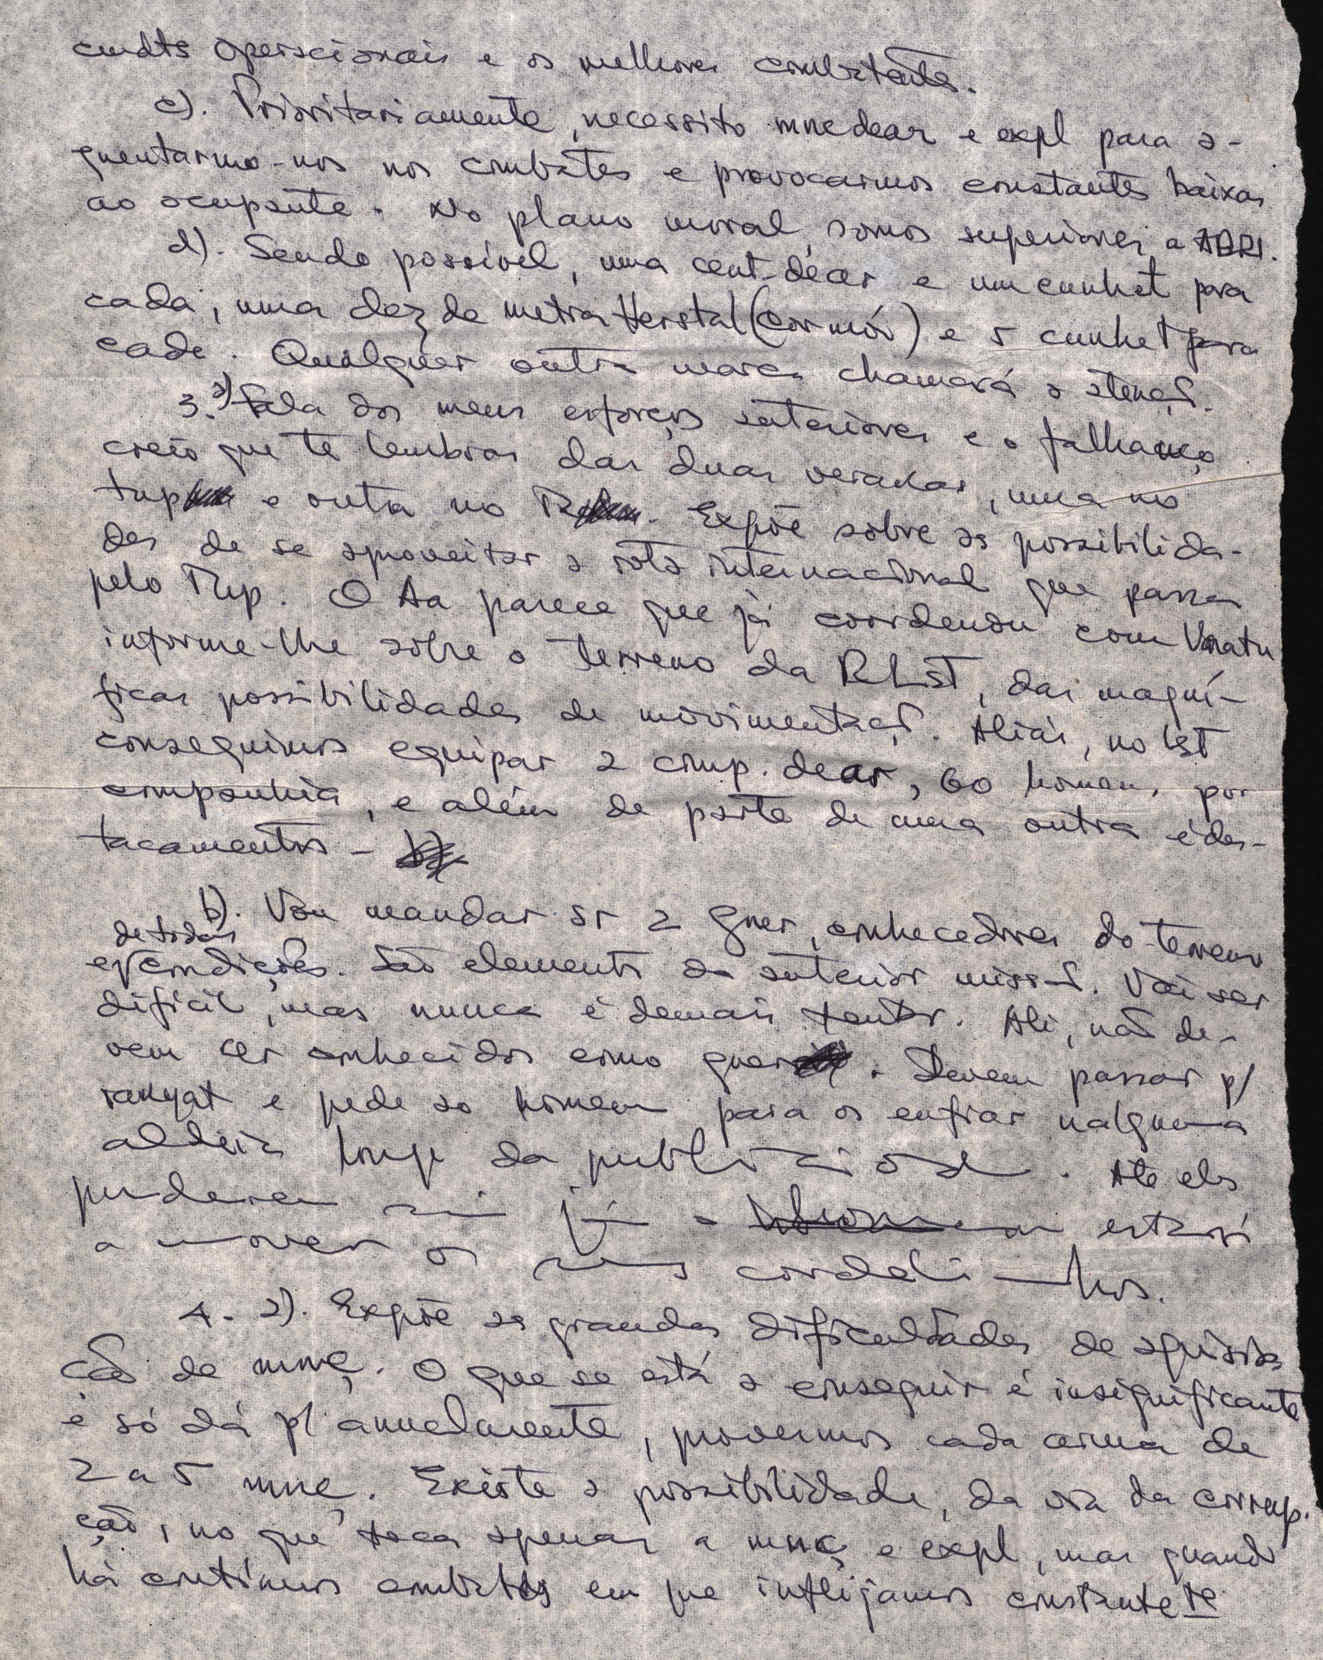 cmdts operacionais e os melhores combatentes.
c). Prioritariamente, necessito mnc dear e expl para a-
guentarmo-nos nos combates e provocarmos constantes baixas
ao ocupante. No plano moral, somos superiores a ABRI.
d). Sendo possível, uma cent. dear e um cunhet para
cada, uma dez de metra Herstal (cor mór) e 5 cunhet para
cada. Qualquer outra marca chamará a atenç.
3. a) Fala dos meus esforços anteriores e o falhanço
creio que te lembras das duas veradas, uma no
tup e outra no R. Expõe sobre as possibilida-
des de se aproveitar a rota internacional que passa
pelo Tup. O Aa parece que já coordenou com
informe-lhe sobre o terreno da RLST, das magní-
ficas possibilidades de movimentaç. Aliás, no lst
conseguimos equipar 2 comp. dear, 60 homens por
companhia, e além de parte de uma outra e des-
tacamentos -
b). Vou mandar sr 2 guer, conhecedores do terreno
de todas
as condições. São elementos da anterior miss. Vai ser
difícil, mas nunca é demais tentar. Ali, não de-
vem ser conhecidos como guer. Devem passar p/
rakyat e pede ao homem para os enfiar nalguma
aldeia longe da publicidade. Até eles
puderem estará
a mover os seus cordelinhos.
4. a). Expõe as grandes dificuldades de aquisi-
ção de mnç. O que se está a conseguir é insignificante
e só dá p/ anualmente, provermos cada arma de
2 a 5 mnç. Existe a possibilidade, da via da corrup-
ção, no que toca apenas a mnç e expl, mas quando
há contínuos combates em que inflijamos constante te